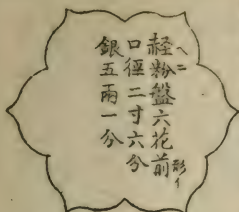 ヘニ
䞓粉盤六花前 形イ
口徑二寸六分
銀五兩一分